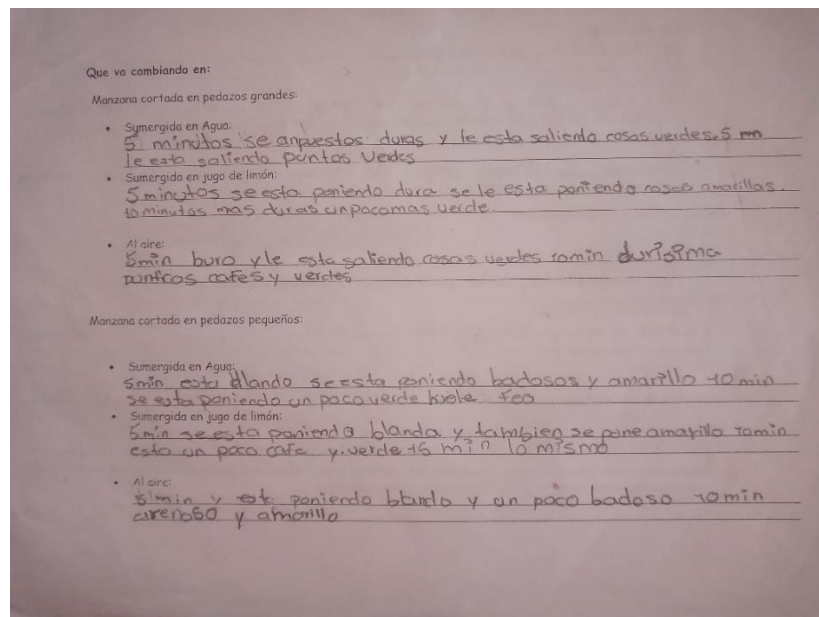 Que va cambiando en:
Manzana cortada en pedazos grandes:
• Sumergida en Agua:
5 minutos se anpuestos duras y le esta saliendo cosas verdes. 5 mn
le esta saliendo puntos Verdes
• Sumergida en jugo de limón:
5 minutos se esta poniendo dura se le esta poniendo cosas amarillas
10 minutos mas duras un poco mas verde
• Al aire:
5min buro y le esta saliendo cosas verdes 10 min durisima
punticos cafes y verdes
Manzana cortada en pedazos pequeños:
• Sumergida en Agua:
5min esta blando se esta poniendo badosos y amarillo 10 min
se esta poniendo un poco verde huele feo
• Sumergida en jugo de limón:
5min se esta poniendo blanda y tambien se pone amarillo 10 min
esta un poco cafe y verde 15 min lo mismo
• Al aire:
5 min y poniendo blando y un poco badoso 10 min
arenoso y amarillo